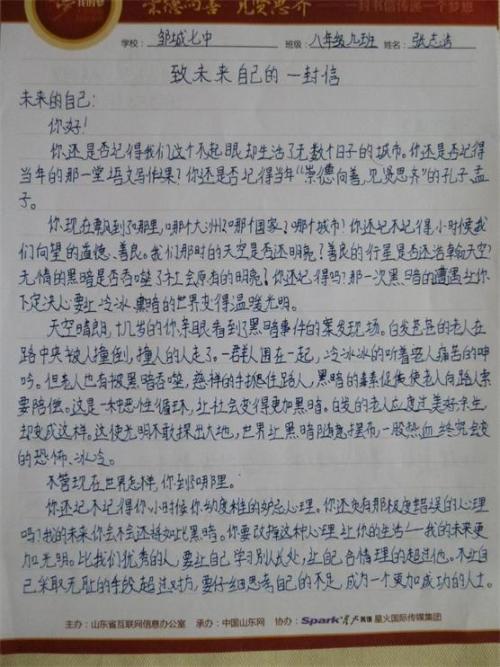 崇德向善 见贤思齐
一封书信传递一个梦想
学校：邹城七中 班级：八年级九班 姓名：张志浩
致未来自己的一封信
未来的自己：
你好！
你还是否记得我们这个不起眼却生活了无数个日子的城市。你还是否记得
当年的那一堂语文写作课？你还是否记得当年“崇德向善，见贤思齐”的孔子孟
子。
你现在飘到了哪里，哪个大洲？哪个国家？哪个城市！你还记不记得，小时候我
们向望的道德、善良。我们那时的天空是否还明亮？善良的行星是否还活翰天空？
无情的黑暗是否吞噬了社会原有的明亮！你还记得吗？那一次黑暗的遭遇让你
下定决心要让冷冰黑暗的世界变得温暖光明。
天空晴朗，十几岁的你亲眼看到了黑暗事件的案发现场。白发苍苍的老人在
路中央被人撞倒，撞人的人走了。一群人围在一起，冷冰冰的听着老人痛苦的呻
吟。但老人也有被黑暗吞噬，慈祥的手抱住路人，黑暗的毒素促使使老人向路人索
要陪偿。这是一种恶性循环，让社会变得更加黑暗。白发的老人应度过美好余生
却变成这样。这使光明不敢探出大地，世界让黑暗随意摆布一股热血终究会变
的恐怖、冰冷。
不管现在世界怎样，你到哪里。
你还记不记得你小时候你幼稚的妒忌心理。你还负有那极度错误的心理
吗？我的未来你会不会还将如此黑暗。你要改掉这种心理让你的生活——我的未来更
加光明。比我们优秀的人，要让自己学习别人长处，让自己合情理的超过他。不让自
己采取无耻的手段超过对方，要仔细思考自己的不足，成为一个更加成功的人士。
主办：山东省互联网信息办公室 承办：中国山东网 协办：Spark 星火国际传媒集团